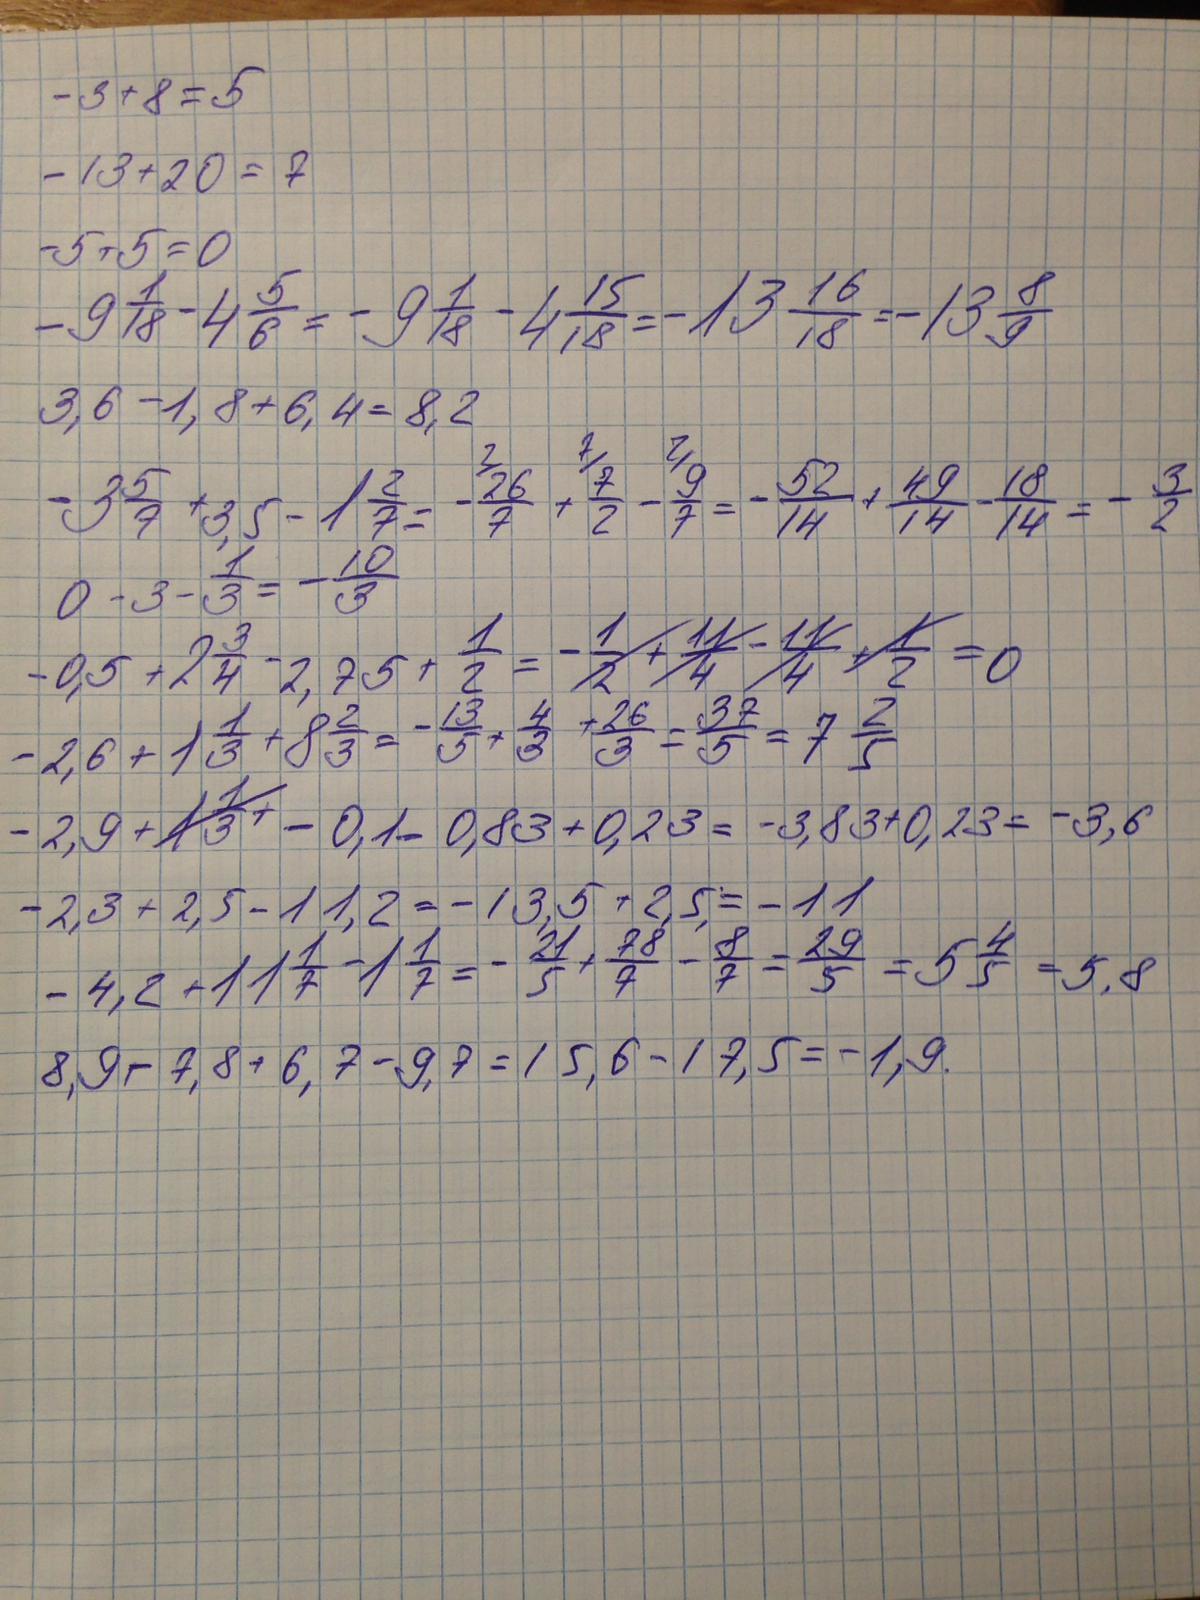 -3+8=5
-13+20=7
-5+5=0
-9 1/18 - 4 5/6 = -9 1/18 - 4 15/18 = -13 16/18 = -13 8/9
3,6-1,8+6,4=8,2
-3 5/7 + 3,5 - 1 2/7 = - 26/7 + 7/2 - 9/7 = - 52/14 + 49/14 - 18/14 = - 3/2
0-3- 1/3 = - 10/3
-0,5+2 3/4 - 2,75 + 1/2 = - 1/2 + 11/4 - 11/4 + 1/2 = 0
-2,6+1 1/3 + 8 2/3 = - 13/5 + 4/3 + 26/3 = 37/5 = 7 2/5
-2,9+ 1 1/3 + - 0,1 - 0,83+0,23 = -3,83+0,23 = -3,6
-2,3+2,5-11,2=-13,5+2,5=-11
-4,2+11 1/7 - 1 1/7 = - 21/5 + 78/7 - 8/7 = 29/5 = 5 4/5 = 5,8
8,9-7,8+6,7-9,7=15,6-17,5=-1,9.